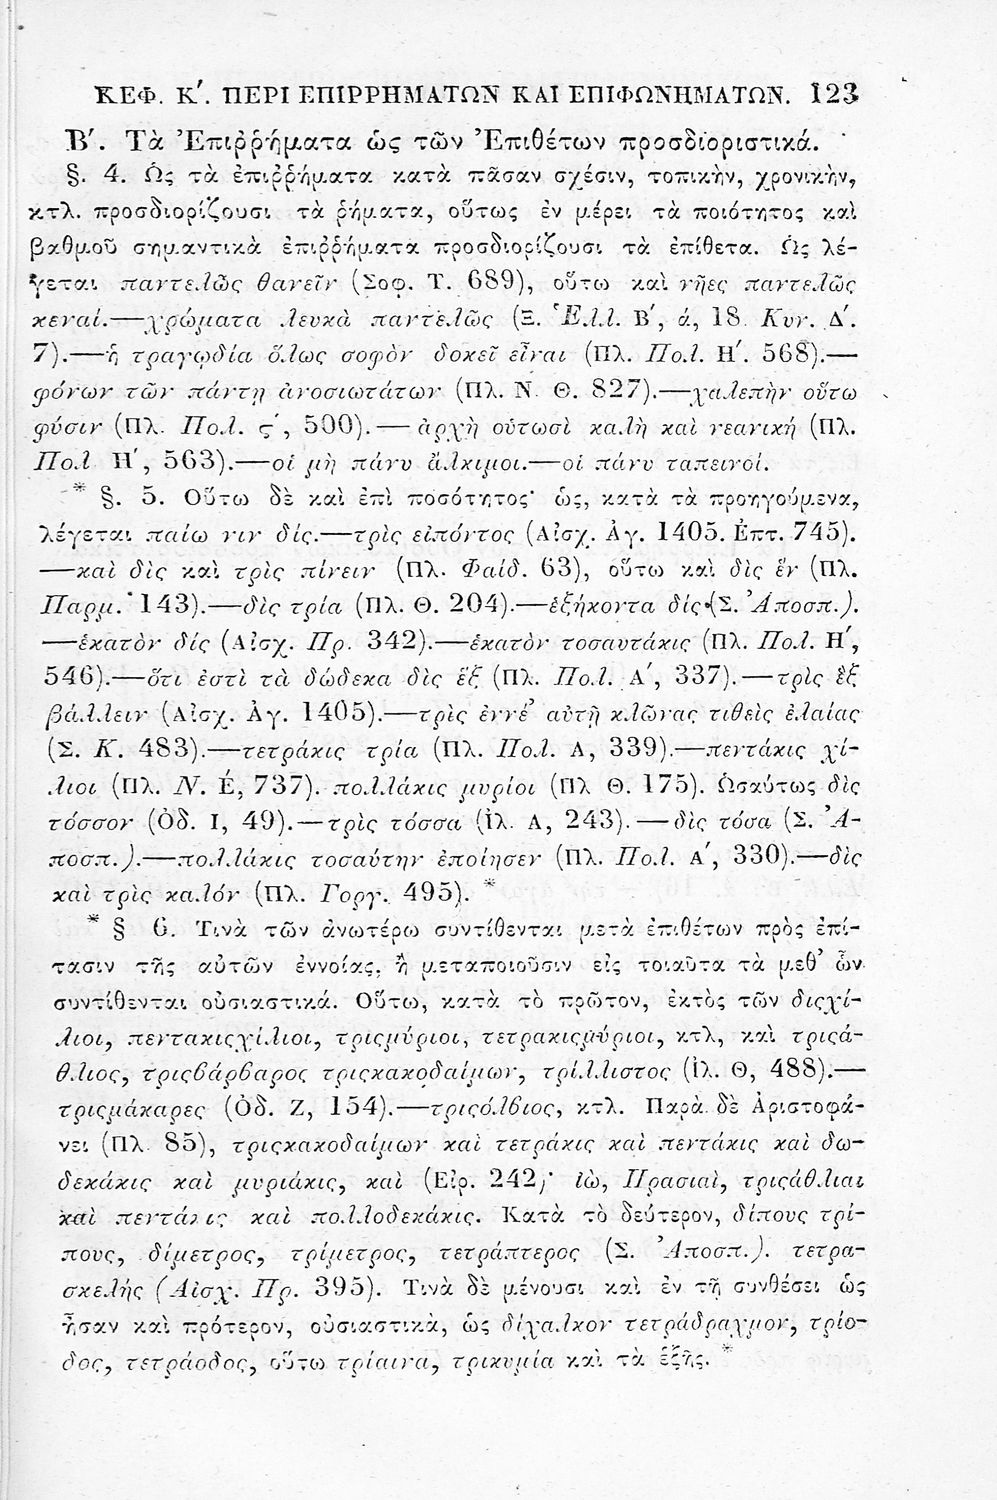 ΚΕΦ. Κ΄. ΠΕΡΙ ΕΠΙΡΡΗΜΑΤΩΝ ΚΑΙ ΕΠΙΦΩΝΗΜΑΤΩΝ. 123
Β΄. Τὰ Ἐπιῤῥήματα ὡς τῶν Ἐπιθέτων προσδιοριστικά.
§. 4. Ὡς τὰ ἐπιῤῥήματα κατὰ πᾶσαν σχέσιν, τοπικὴν, χρονικὴν,
κτλ. προσδιορίζουσι τὰ ῥήματα, οὕτως ἐν μέρει τὰ ποιότητος καὶ
βαθμοῦ σημαντικὰ ἐπιῤῥήματα προσδιορίζουσι τὰ ἐπίθετα. Ὡς λέ-
γεται παντελῶς θανεῖν (Σοφ. Τ. 689), οὕτω καὶ νῆες παντελῶς
κεναί.—χρώματα λευκὰ παντελῶς (Ξ. Ἑλλ. Β΄, ά, 18. Κυν. Δ΄.
7).—ἡ τραγῳδία ὅλως σοφὸν δοκεῖ εἶναι (Πλ. Πολ. Η΄. 568).—
φόνων τῶν πάντῃ ἀνοσιωτάτων (Πλ. Ν. Θ. 827).—χαλεπὴν οὕτω
φύσιν (Πλ. Πολ. ς΄, 500).—ἀρχὴ οὑτωσὶ καλὴ καὶ νεανική (Πλ.
Πολ Η΄, 563).—οἱ μὴ πάνυ ἄλκιμοι.—οἱ πάνυ ταπεινοί.
* §. 5. Οὕτω δὲ καὶ ἐπὶ ποσότητος· ὡς, κατὰ τὰ προηγούμενα,
λέγεται παίω νιν δίς.—τρὶς εἰπόντος (Αἰσχ. Ἀγ. 1405. Ἑπτ. 745).
—καὶ δὶς καὶ τρὶς πίνειν (Πλ. Φαίδ. 63), οὕτω καὶ δὶς ἕν (Πλ.
Παρμ. 143).—δὶς τρία (Πλ. Θ. 204).—ἑξήκοντα δίς (Σ. Ἀποσπ.).
—ἑκατὸν δίς (Αἰσχ. Πρ. 342).—ἑκατὸν τοσαυτάκις (Πλ. Πολ. Η΄,
546).—ὅτι ἐστὶ τὰ δώδεκα δὶς ἕξ (Πλ. Πολ. Α΄, 337).—τρὶς ἓξ
βάλλειν (Αἰσχ. Ἀγ. 1405).—τρὶς ἐννέ’ αὐτῇ κλῶνας τιθεὶς ἐλαίας
(Σ. Κ. 483).—τετράκις τρία (Πλ. Πολ. Α, 339).—πεντάκις χί-
λιοι (Πλ. Ν. Έ, 737). πολλάκις μυρίοι (Πλ Θ. 175). Ὡσαύτως δὶς
τόσσον (Ὀδ. Ι, 49).—τρὶς τόσσα (Ἰλ. Α, 243).—δὶς τόσα (Σ. Ἀ-
ποσπ.).—πολλάκις τοσαύτην ἐποίησεν (Πλ. Πολ. Α΄, 330).—δὶς
καὶ τρὶς καλόν (Πλ. Γοργ. 495). *
* § 6. Τινὰ τῶν ἀνωτέρω συντίθενται μετὰ ἐπιθέτων πρὸς ἐπί-
τασιν τῆς αὐτῶν ἐννοίας, ἢ μεταποιοῦσιν εἰς τοιαῦτα τὰ μεθ’ ὧν
συντίθενται οὐσιαστικά. Οὕτω, κατὰ τὸ πρῶτον, ἐκτὸς τῶν διςχί-
λιοι, πεντακιςχίλιοι, τριςμύριοι, τετρακιςμύριοι, κτλ, καὶ τριςά-
θλιος, τριςβάρβαρος τριςκακοδαίμων, τρίλλιστος (Ἰλ. Θ, 488).—
τριςμάκαρες (Ὀδ. Ζ, 154).—τριςόλβιος, κτλ. Παρὰ δὲ Ἀριστοφά-
νει (Πλ. 85), τριςκακοδαίμων καὶ τετράκις καὶ πεντάκις καὶ δω-
δεκάκις καὶ μυριάκις, καὶ (Εἰρ. 242)· ἰὼ, Πρασιαὶ, τριςάθλιαι
καὶ πεντάκις καὶ πολλοδεκάκις. Κατὰ τὸ δεύτερον, δίπους τρί-
πους, δίμετρος, τρίμετρος, τετράπτερος (Σ. Ἀποσπ.). τετρα-
σκελής (Αἰσχ. Πρ. 395). Τινὰ δὲ μένουσι καὶ ἐν τῇ συνθέσει ὡς
ἦσαν καὶ πρότερον, οὐσιαστικὰ, ὡς δίχαλκον τετράδραχμον, τρίο-
δος, τετράοδος, οὕτω τρίαινα, τρικυμία καὶ τὰ ἑξῆς. *